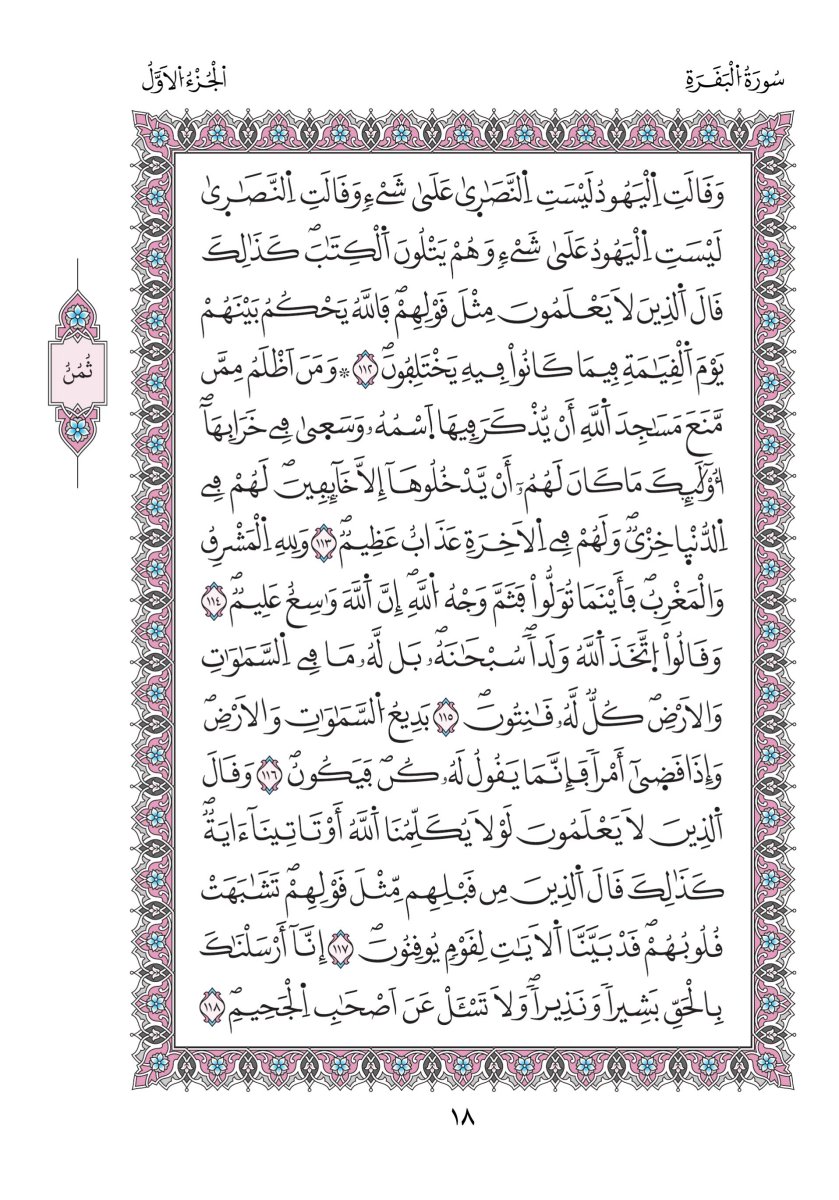 سُورَةُ اُ۬لْبَقَرَةِ
اَ۬لْجُزْءُ اُ۬لَاوَّلُ
وَقَالَتِ اِ۬لْيَهُودُ لَيْسَتِ اِ۬لنَّصَٰر۪ىٰ عَلَىٰ شَےْءٖ وَقَالَتِ اِ۬لنَّصَٰر۪ىٰ
لَيْسَتِ اِ۬لْيَهُودُ عَلَىٰ شَےْءٖ وَهُمْ يَتْلُونَ اَ۬لْكِتَٰبَۖ كَذَٰلِكَ
قَالَ اَ۬لذِينَ لَا يَعْلَمُونَ مِثْلَ قَوْلِهِمْۖ فَاللَّهُ يَحْكُمُ بَيْنَهُمْ
يَوْمَ اَ۬لْقِيَٰمَةِ فِيمَا كَانُواْ فِيهِ يَخْتَلِفُونَۖ ١١٢ ۞ وَمَنَ اَظْلَمُ مِمَّن
ثُمُنُ
مَّنَعَ مَسَٰجِدَ اَ۬للَّهِ أَنْ يُّذْكَرَ فِيهَا اَ۪سْمُهُۥ وَسَع۪ىٰ فِے خَرَابِهَآۖ
أُوْلَٰٓئِكَ مَا كَانَ لَهُمُۥٓ أَنْ يَّدْخُلُوهَآ إِلَّا خَآئِفِينَۖ لَهُمْ فِے
اِ۬لدُّنْي۪ا خِزْيٞۖ وَلَهُمْ فِے اِ۬لَاخِرَةِ عَذَابٌ عَظِيمٞۖ ١١٣ وَلِلهِ اِ۬لْمَشْرِقُ
وَالْمَغْرِبُۖ فَأَيْنَمَا تُوَلُّواْ فَثَمَّ وَجْهُ اُ۬للَّهِۖ إِنَّ اَ۬للَّهَ وَٰسِعٌ عَلِيمٞۖ ١١٤
وَقَالُواْ اُ۪تَّخَذَ اَ۬للَّهُ وَلَداٗۖ سُبْحَٰنَهُۥۖ بَل لَّهُۥ مَا فِے اِ۬لسَّمَٰوَٰتِ
وَالَارْضِۖ كُلّٞ لَّهُۥ قَٰنِتُونَۖ ١١٥ بَدِيعُ اُ۬لسَّمَٰوَٰتِ وَالَارْضِۖ
وَإِذَا قَض۪ىٰٓ أَمْراٗ فَإِنَّمَا يَقُولُ لَهُۥ كُنۖ فَيَكُونُۖ ١١٦ وَقَالَ
اَ۬لذِينَ لَا يَعْلَمُونَ لَوْلَا يُكَلِّمُنَا اَ۬للَّهُ أَوْ تَاتِينَآ ءَايَةٞۖ
كَذَٰلِكَ قَالَ اَ۬لذِينَ مِن قَبْلِهِم مِّثْلَ قَوْلِهِمْۖ تَشَٰبَهَتْ
قُلُوبُهُمْۖ قَدْ بَيَّنَّا اَ۬لَايَٰتِ لِقَوْمٖ يُوقِنُونَۖ ١١٧ إِنَّآ أَرْسَلْنَٰكَ
بِالْحَقِّ بَشِيراٗ وَنَذِيراٗۖ وَلَا تَسْـَٔلْ عَنَ اَصْحَٰبِ اِ۬لْجَحِيمِۖ ١١٨
١٨